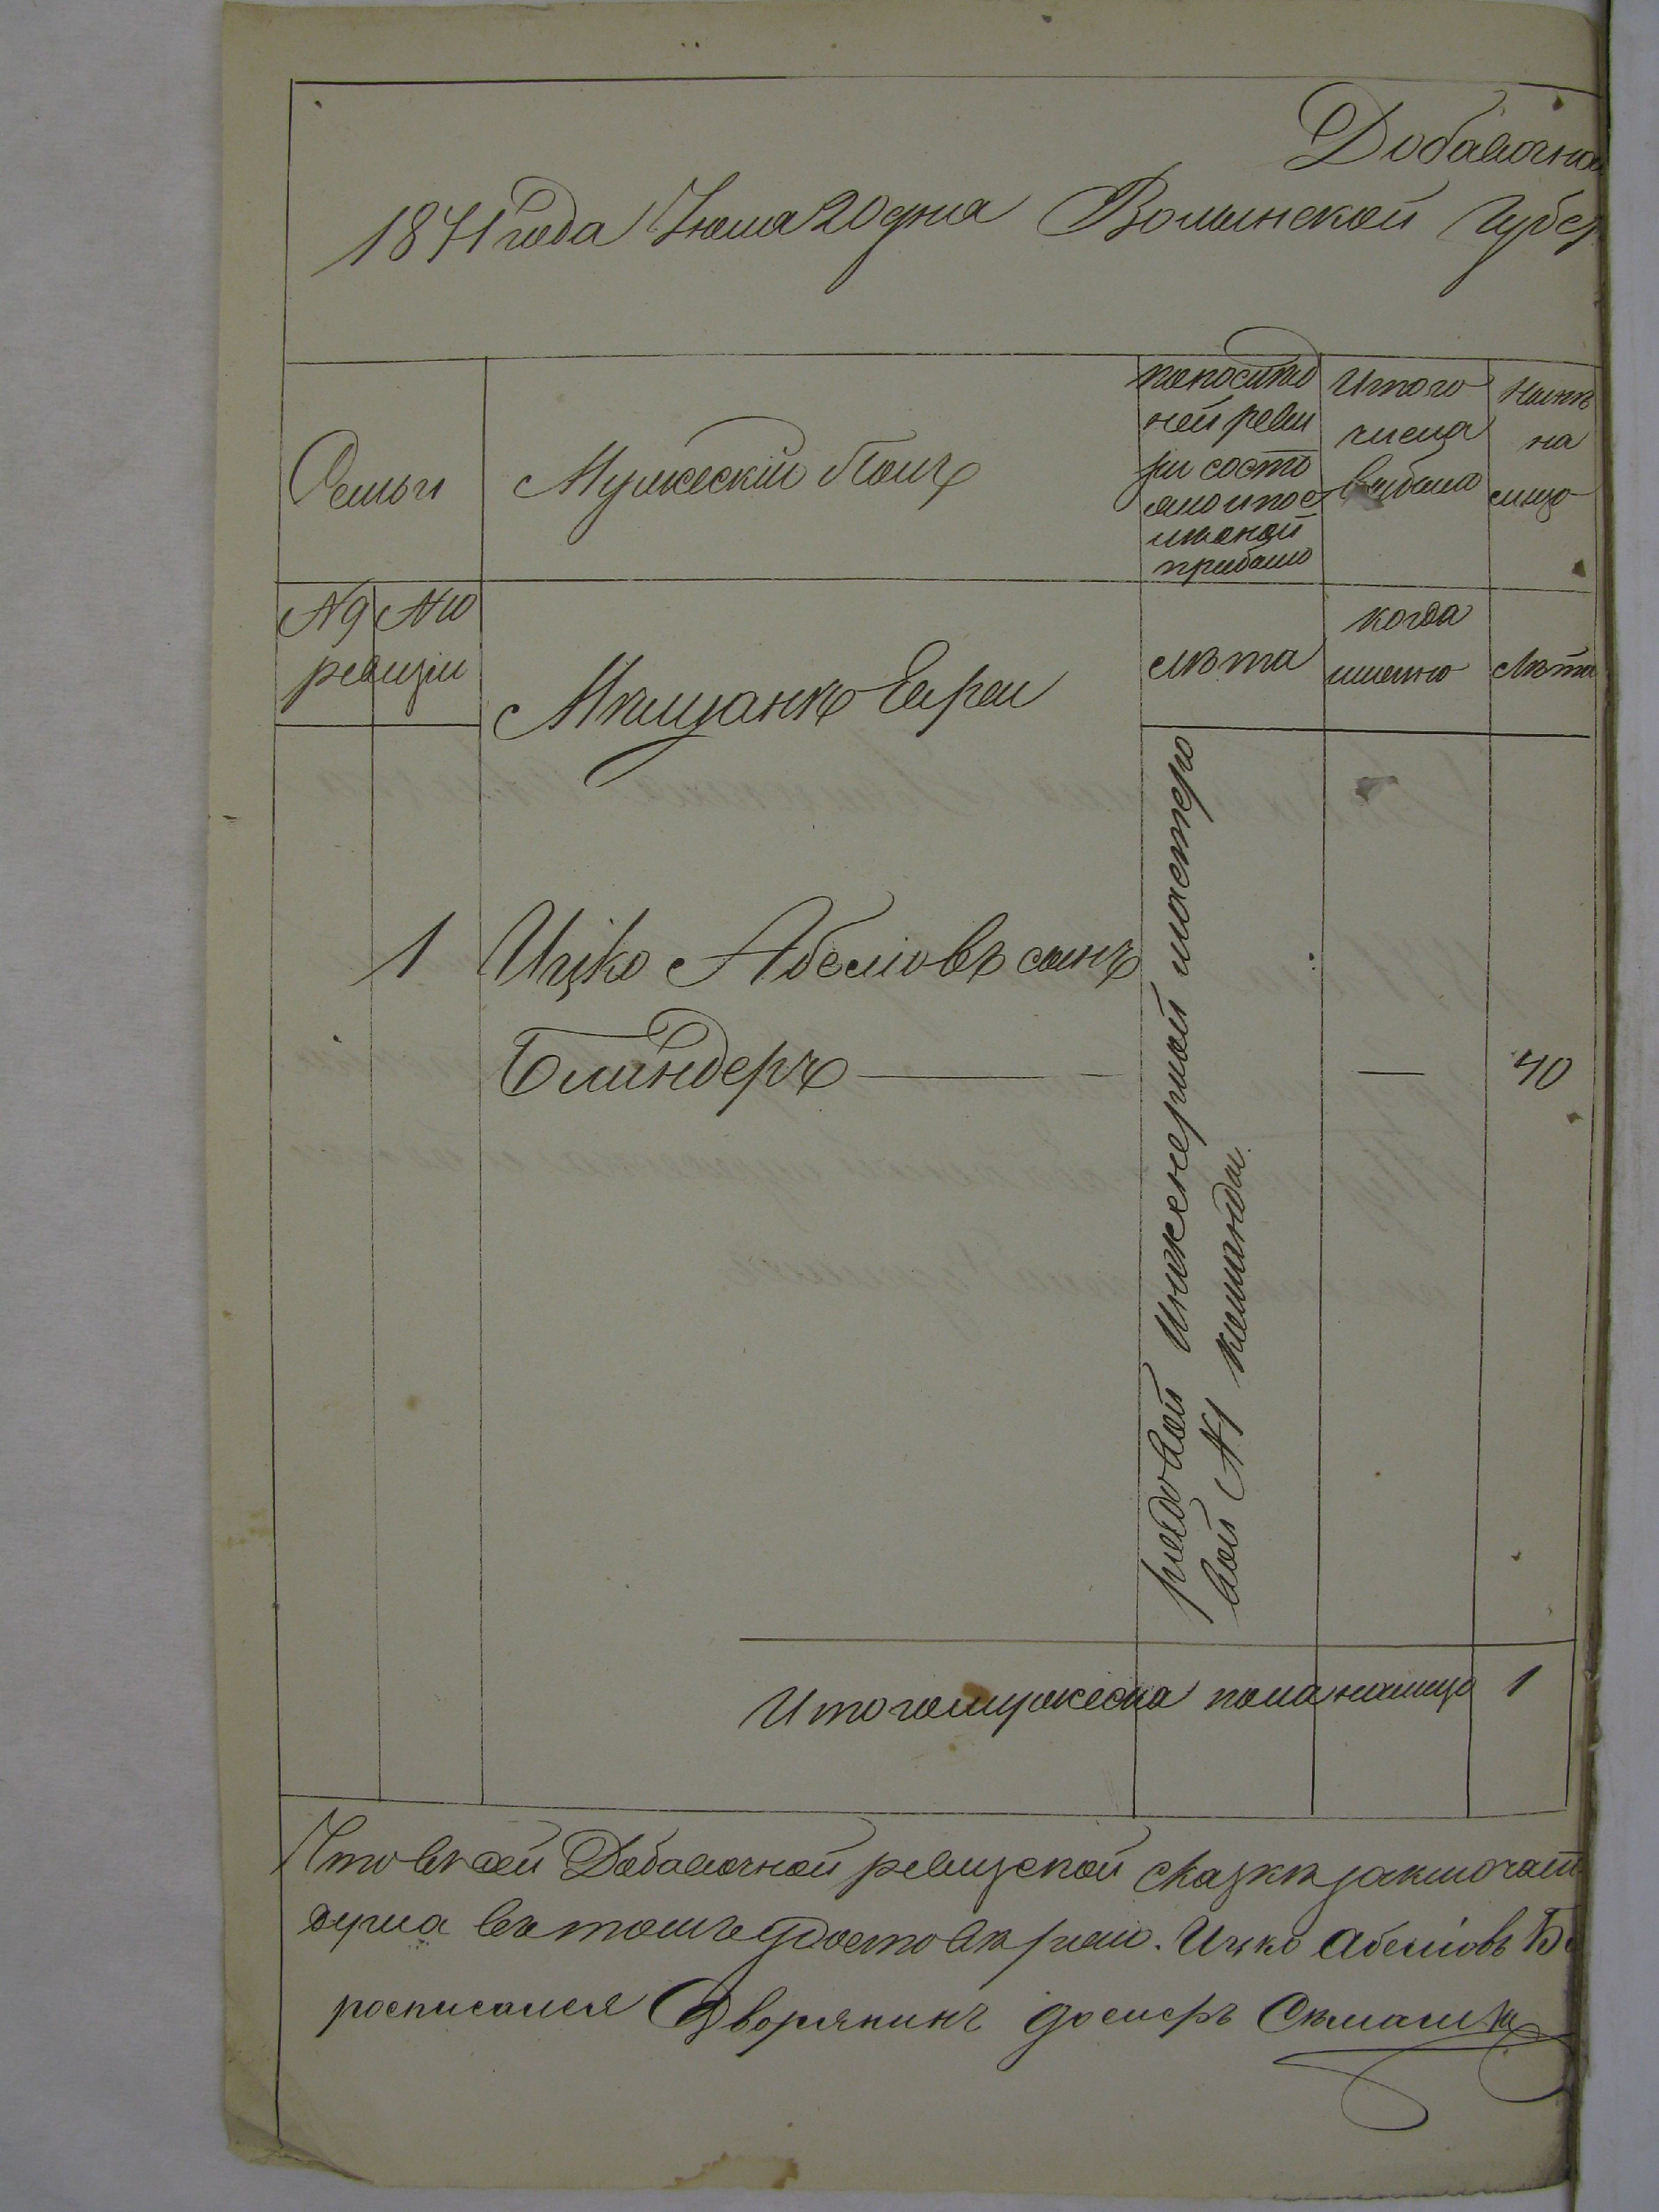 Добавочна
1871 года Июля 20 дня Волынской Губер
Семьи
Мужескій Полъ
по послѣд
ней реви
зіи состо
яло и пос
лѣ оной
прибыло
Изтого
числа
выбыло
Нынѣ
на
лицо
№9 №10
ревизіи
Мѣщанѣ Евреи
лѣта
когда
именно
лѣта
1 Ицко Абелiовъ сынъ
Блиндеръ — — 40
рядовой Инженерной мастеро
вой №1 команды.
Итого мужеска пола налицо 1
Что въ сей Добавочной ревизской сказкѣ заключает
душа въ томъ удостовѣряю. Ицко Абелiовъ Б
росписался Дворянинъ